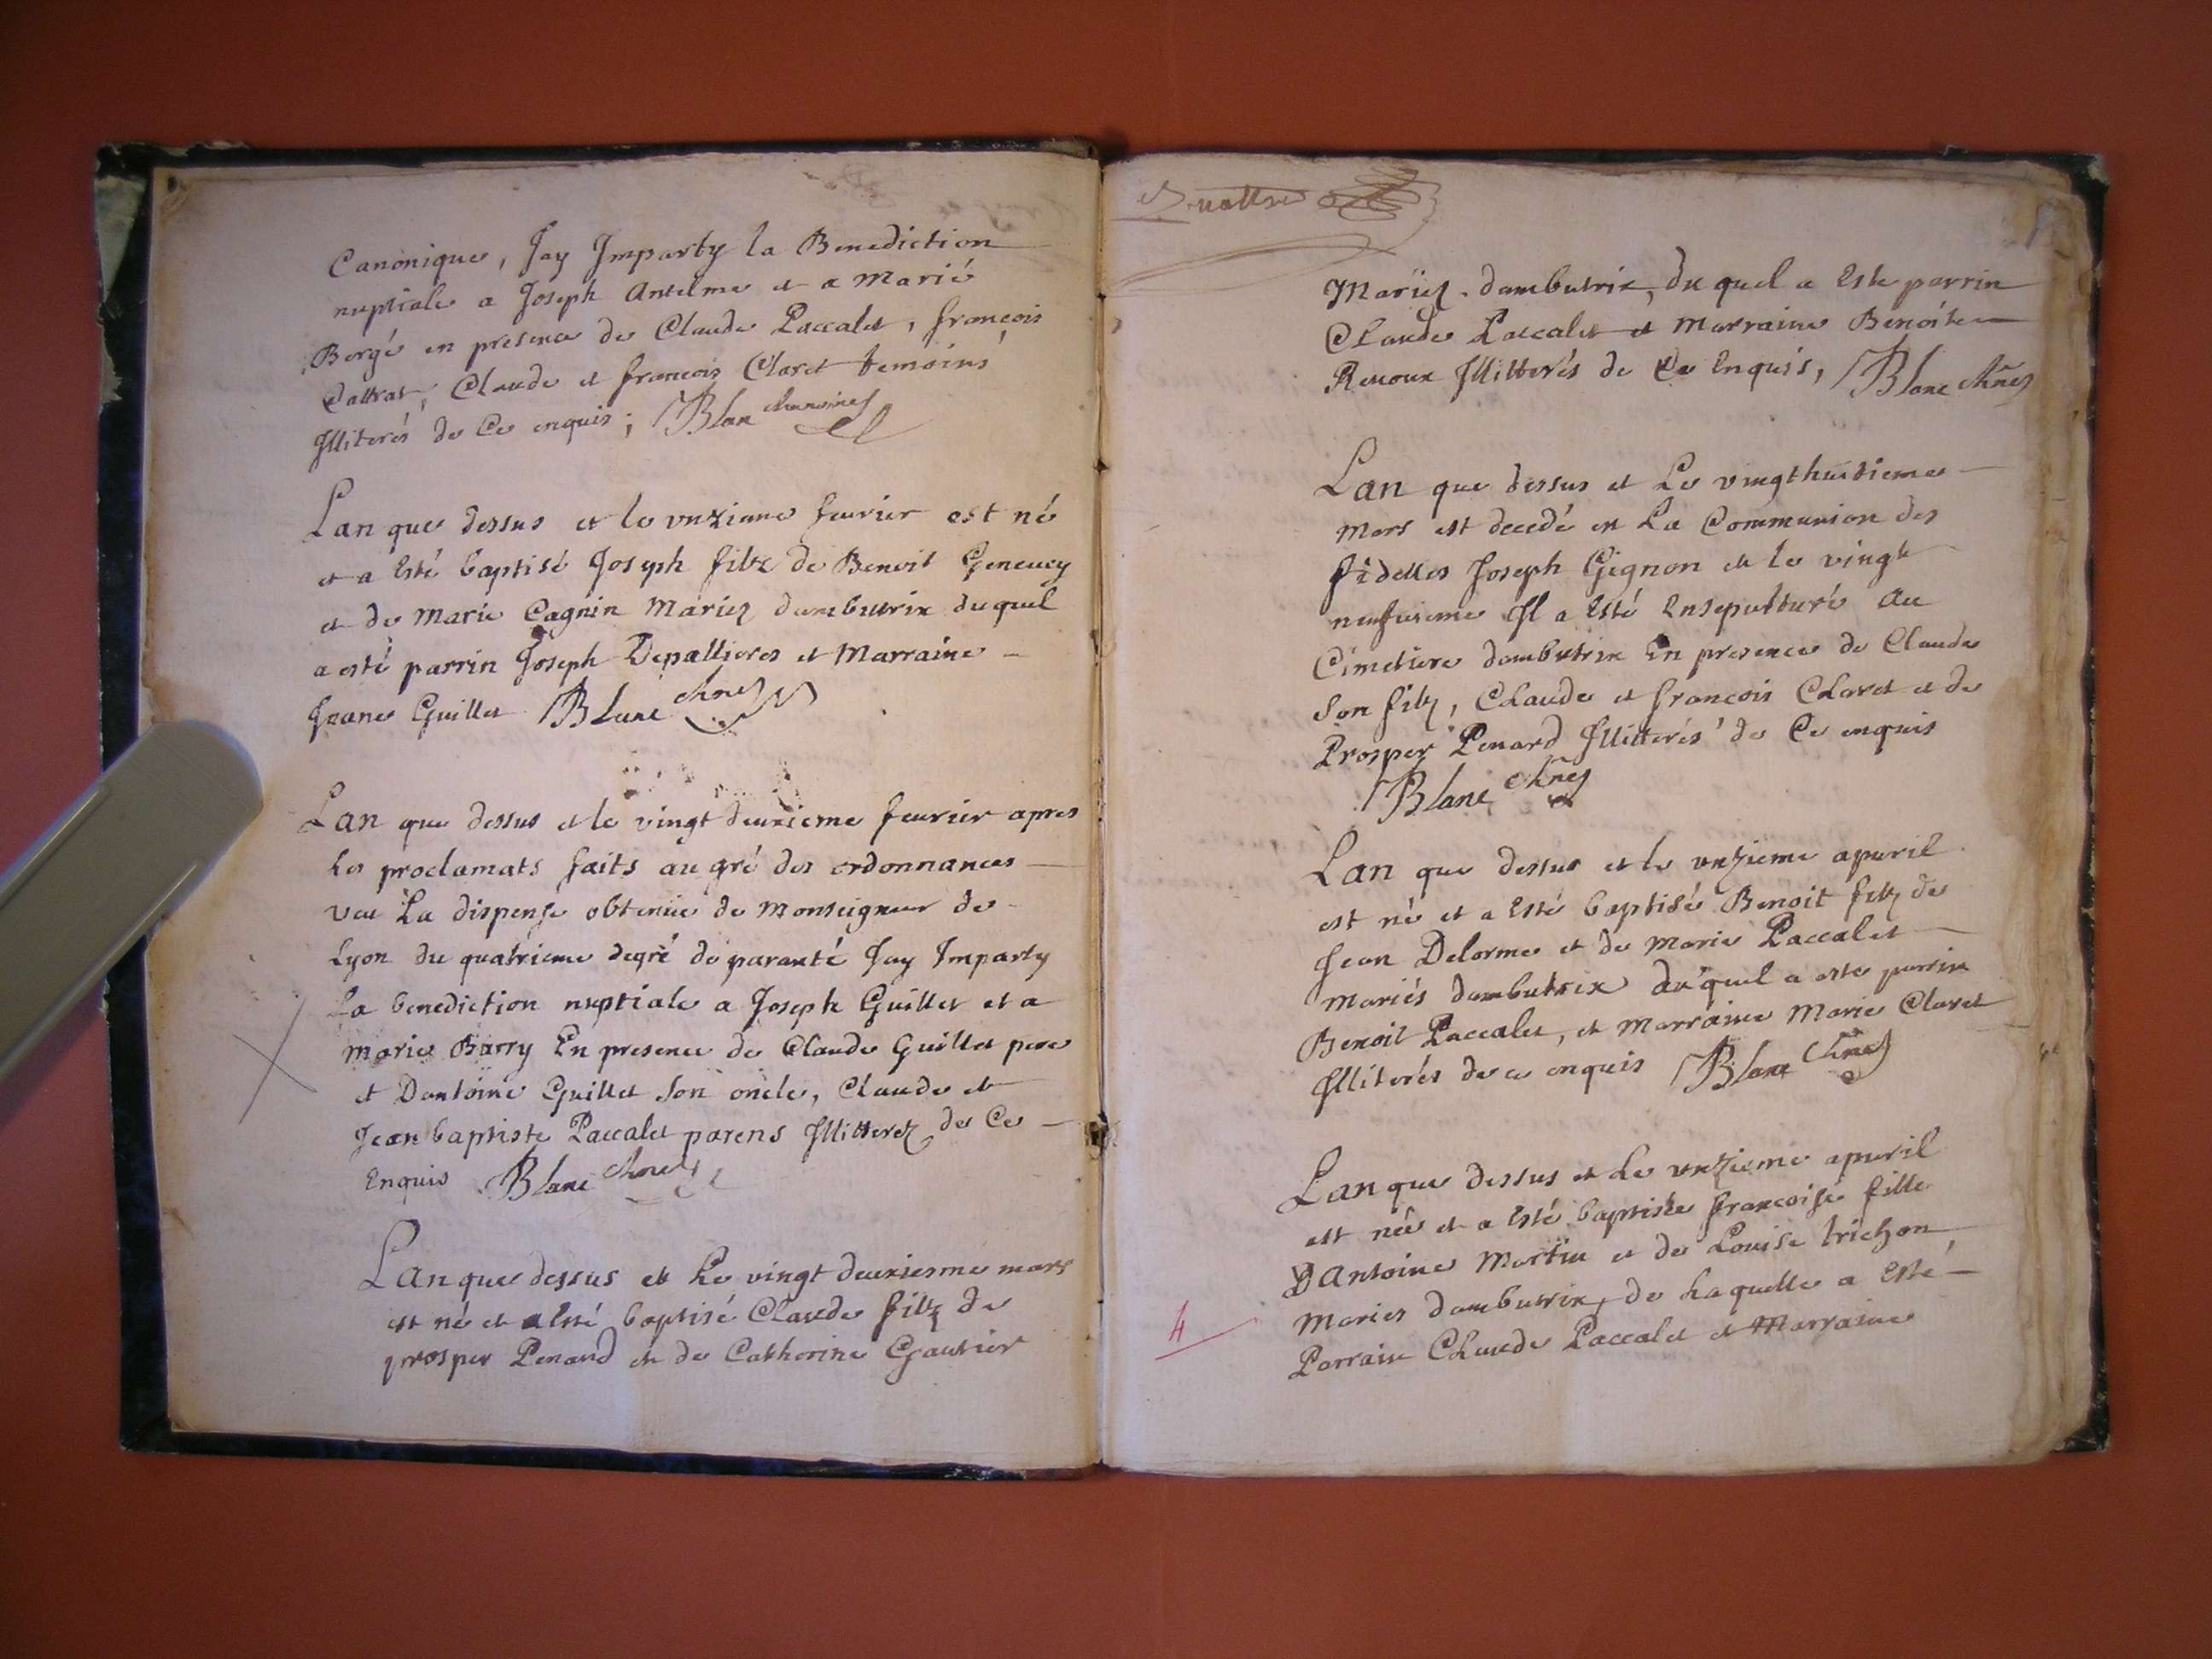 Canonique, Jay Imparty la Benediction
nuptiale a Joseph Antelme et a Marie
Bergé en presence de Claude Paccalet, francois
Cattrat, Claude et francois Claret temoins
Illiterés de Ce enquis; Blanc chanoine
Lan que dessus et le vnzieme feurier est né
et a Esté baptisé Joseph filz de Benoit Geneuey
et de Marie Cagnin Mariez dambutrix duquel
a esté parrin Joseph Depallieres et Marraine
Jeane Guillet Blanc chne
Lan que dessus et le vingt deuxieme feurier apres
les proclamats faits au gré des ordonnances
veu La dispense obtenüe de Monseigneur de
Lyon du quatrieme degré de paranté Jay Imparty
La benediction nuptiale a Joseph Guillet et a
marie Barry En presence de Claude Guillet pere
et Dantoine Guillet Son oncle, Claude et
Jean baptiste Paccalet parens Illitterez de Ce
Enquis Blanc chne
Lan que dessus et Le vingt deuxiesme mars
est né et a Esté baptisé Claude filz de
prosper Penard et de Catherine Gautier
quattre
Mariez dambutrix, du quel a Este parrin
Claude Paccalet et Marraine Benoite
Renoux Illitterés de Ce Enquis, Blanc chne
Lan que dessus et Le vingthuitieme
Mars est decedé en La Communion des
fidelles Joseph Gignon et le vingt
neufuieme Il a Esté Ensepulturé au
Cimetiere dambutrix En presence de Claude
Son filz, Claude et francois Claret et de
Prosper Penard Illitterés de Ce enquis
Blanc chne
Lan que dessus et le vnzieme apuril
est né et a Esté baptisé Benoit filz de
Jean Delorme et de Marie Paccalet
Mariés dambutrix du quel a este parrin
Benoit Paccalet, et Marraine Marie Claret
Illiterés de ce enquis Blanc chne
Lan que dessus et Le vnzieme apuril
est née et a Esté baptisée francoise fille
D Antoine Martin et de Louise trichon,
Maries dambutrix, de Laquelle a Esté
4
Parrain Claude Paccalet et Marraine